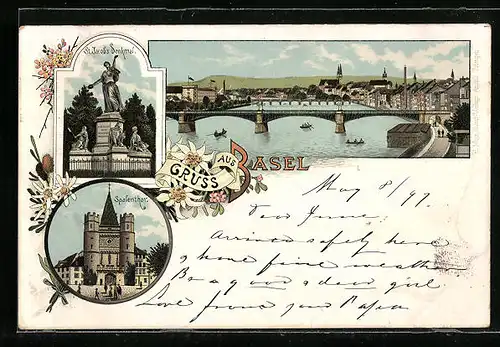 St. Jacobs Denkmal.
GRUSS AUS BASEL
Spalenthor.
May 8/97
Dear June,
Arrived safely here
& have fine weather
Be a good & dear girl
Love from your Papa